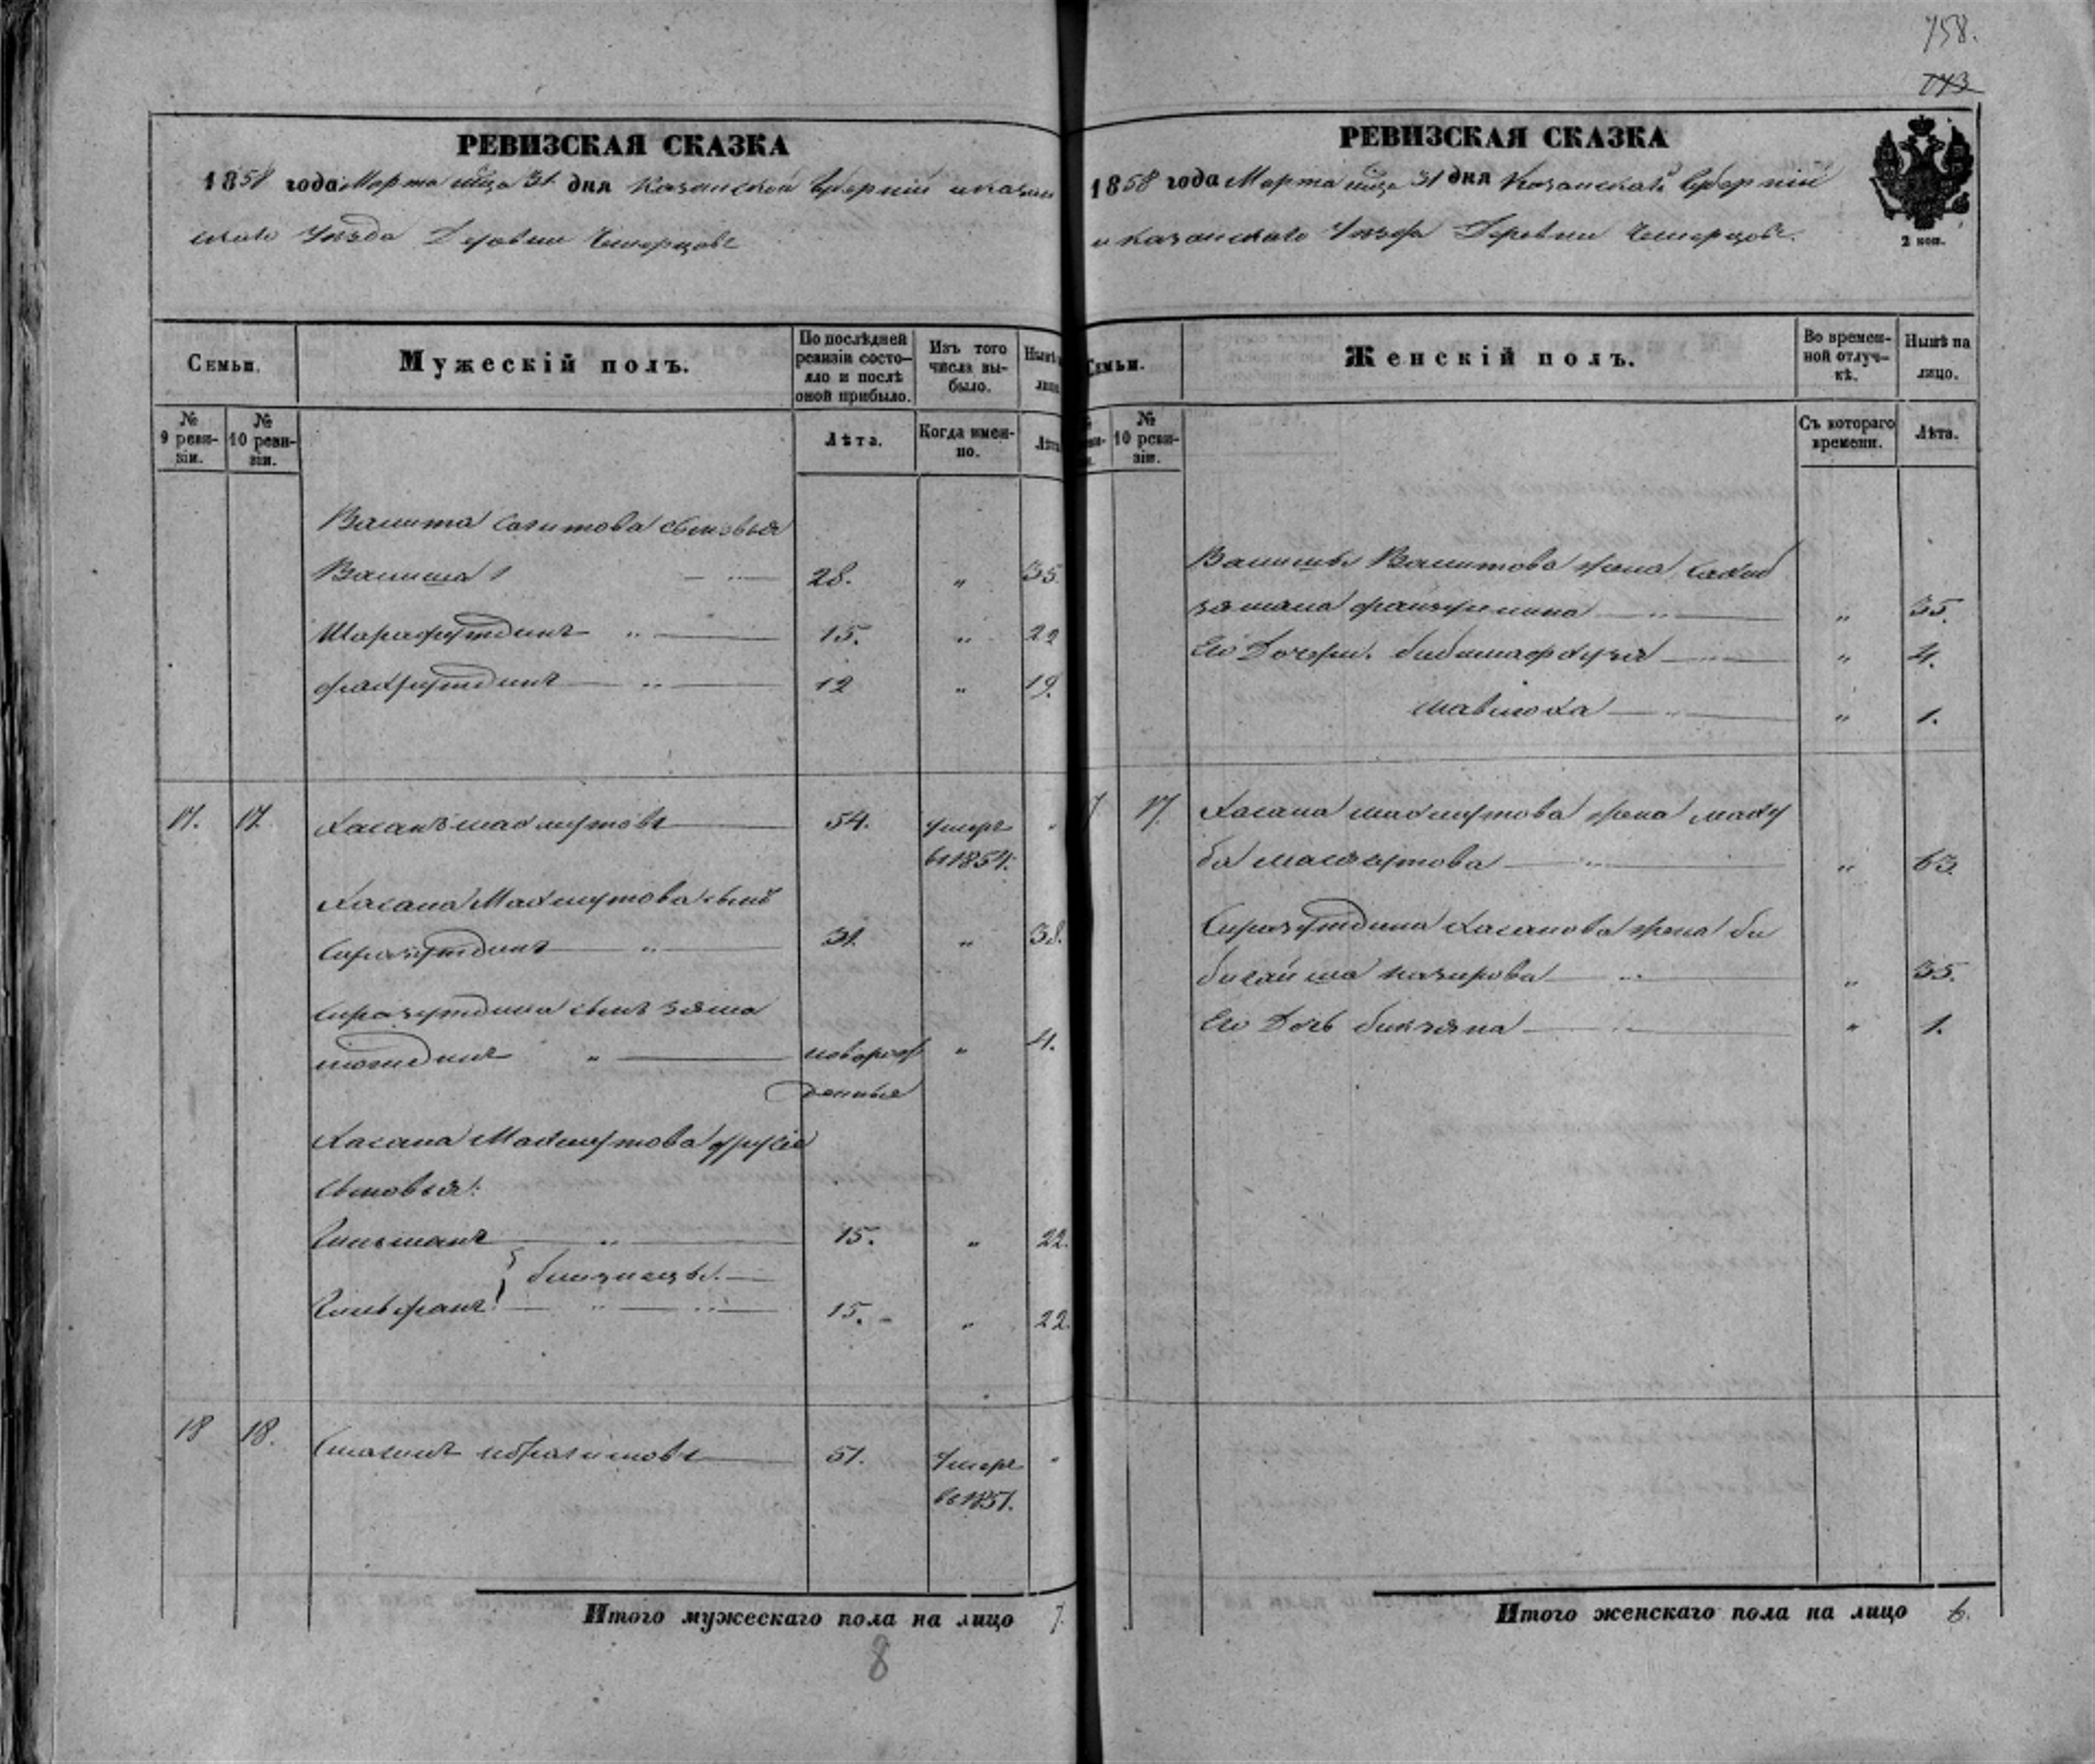 758.
773
РЕВИЗСКАЯ СКАЗКА
1858 года Марта м҃ца 31 дня Казанской Губерніи и Казан
скаго Уѣзда Деревни
Семьи.
Мужескій полъ.
По послѣдней ревизіи состояло и послѣ оной прибыло.
Изъ того числа выбыло.
Нынѣ
лицо
№ 9 ревизіи.
№ 10 ревизіи.
Лѣта.
Когда именно.
Лѣта
Валита Сагитова сыновья
Валиша 28. " 35.
Шарафутдинъ " 15. " 22
Фахрутдинъ " 12 " 19.
17. 17. Хасанъ Махмутовъ 54. Умеръ
въ 1854.
Хасана Махмутова сынъ
Сиразутдинъ " 31. " 38.
Сиразутдина сынъ Зяма
новорож " 4.
денные
Хасана Махмутова другіе
сыновья:
Гильманъ " 15. " 22.
близнецы.
Гильфанъ " 15. " 22.
18 18. Смагилъ Ибрагимовъ 51. Умеръ
въ 1851.
Итого мужескаго пола на лицо 7.
8
РЕВИЗСКАЯ СКАЗКА
1858 года Марта м҃ца 31 дня Казанской Губерніи
и Казанскаго Уѣзда Деревни
2 коп.
Семьи.
Женскій полъ.
Во временной отлучкѣ.
Ныпѣ на лицо.
№ 10 ревизіи.
Съ котораго времени.
Лѣта.
Валиши Валитова жена
" 35.
Его Дочери. " 4.
" 1.
17. Хасана Махмутова жена Маху
ба Масагутова " 63.
Сиразутдина Хасанова жена Би
бигайша Назирова " 35.
Его Дочь " 1.
Итого женскаго пола на лицо 6.